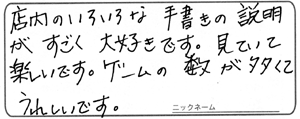 店内のいろいろな 手書きの 説明
が すごく 大好きです。見ていて
楽しいです。ゲームの 数が 多くて
うれしいです。
ニックネーム